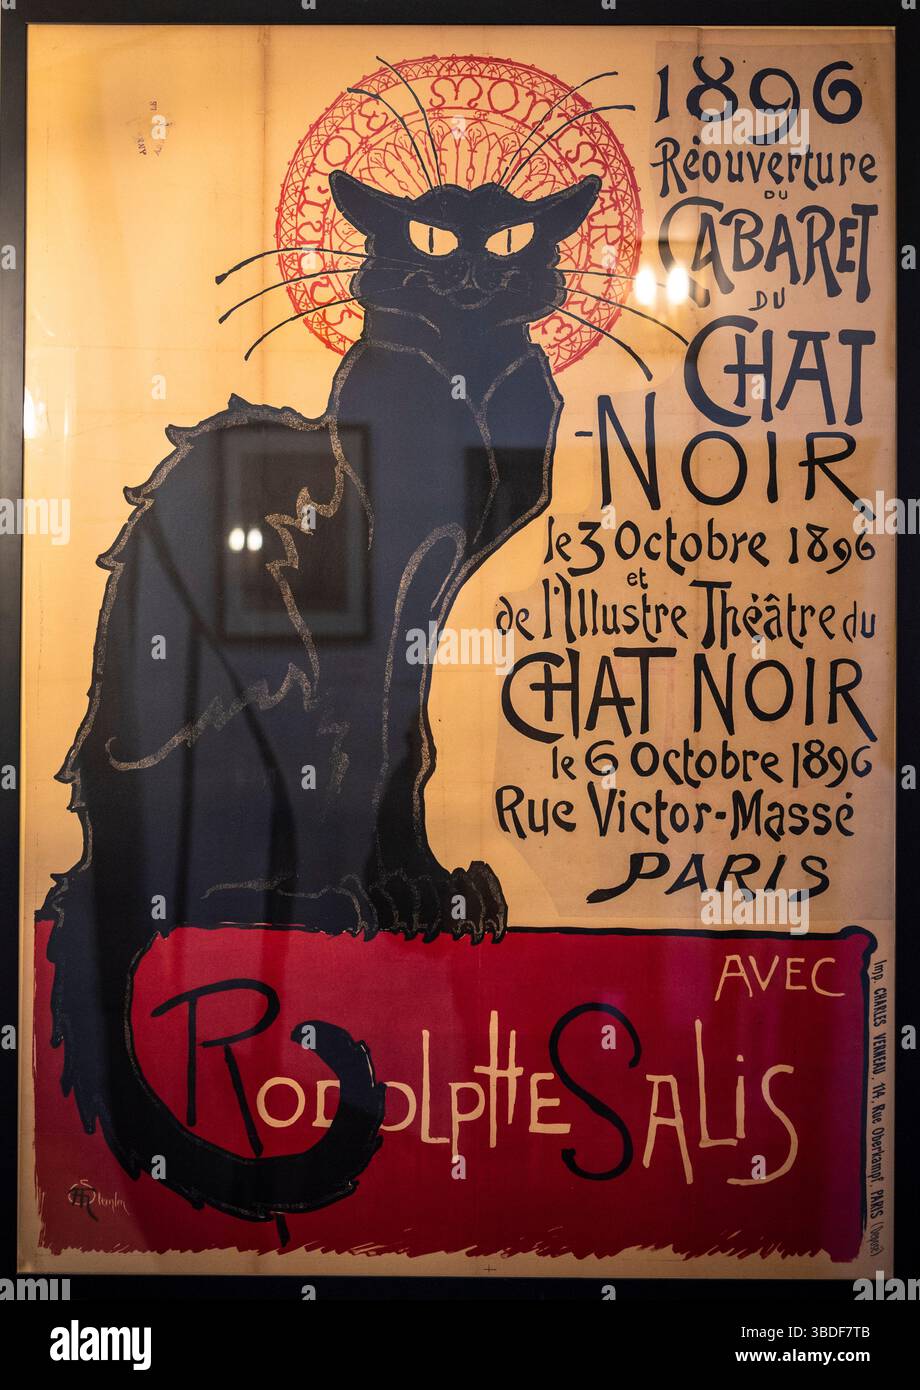 MONTMARTRE
1896
Réouverture
DU
CABARET
DU
CHAT
-NOIR
le 3 Octobre 1896
et
de l'Illustre Théâtre du
CHAT NOIR
le 6 Octobre 1896
Rue Victor-Massé
PARIS
AVEC
RODOLPHE SALIS
Steinlen
Imp. CHARLES VERNEAU, 114, Rue Oberkampf, PARIS
alamy
Image ID: 3BDF7TB
www.alamy.com